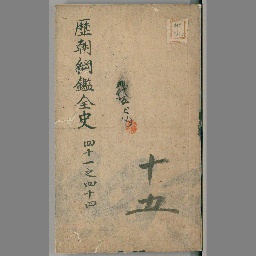 歷朝綱鑑全史
四十一之四十四
十五